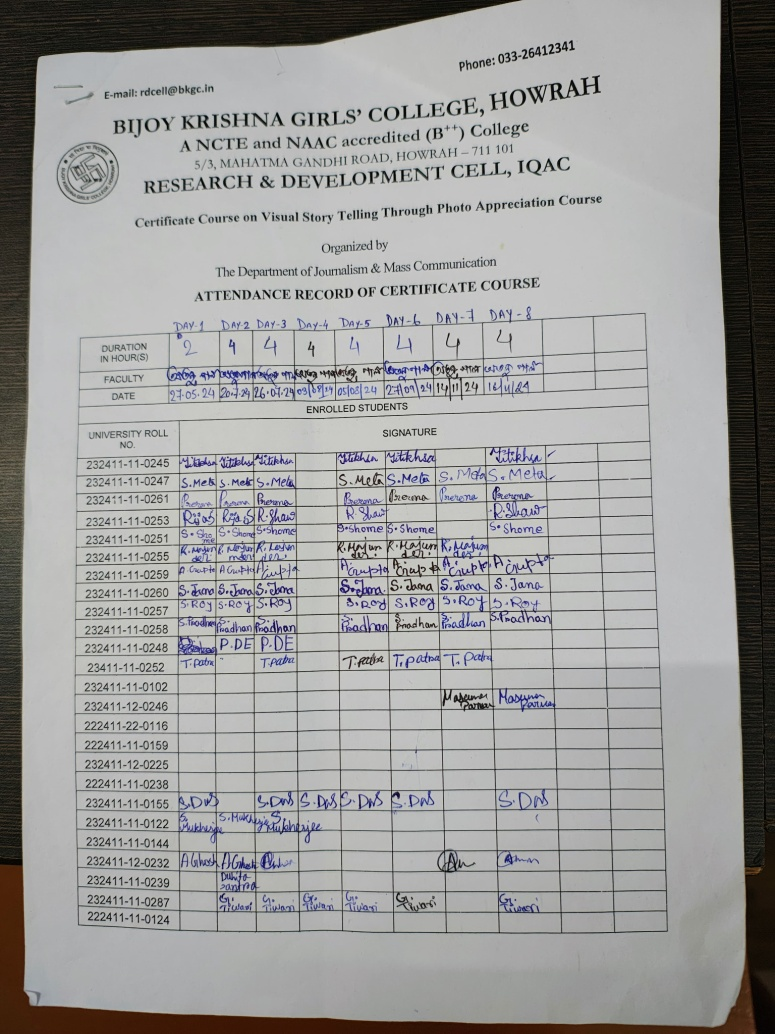 E-mail: rdcell@bkgc.in
Phone: 033-26412341
BIJOY KRISHNA GIRLS' COLLEGE, HOWRAH
A NCTE and NAAC accredited (B++) College
5/3, MAHATMA GANDHI ROAD, HOWRAH – 711 101
RESEARCH & DEVELOPMENT CELL, IQAC
Certificate Course on Visual Story Telling Through Photo Appreciation Course
Organized by
The Department of Journalism & Mass Communication
ATTENDANCE RECORD OF CERTIFICATE COURSE
DAY-1 DAY-2 DAY-3 DAY-4 DAY-5 DAY-6 DAY-7 DAY-8
DURATION IN HOUR(S) 2 4 4 4 4 4 4 4
FACULTY
DATE 27.05.24 20.7.24 26.07.24 05/08/24 27/09/24 14/11/24 16/11/24
ENROLLED STUDENTS
UNIVERSITY ROLL NO. SIGNATURE
232411-11-0245 Titikhsa Titikhsa Titikhsa Titikhsa Titikhsa Titikhsa
232411-11-0247 S.Meta S.Meta S.Meta S.Meta S.Meta S.Meta S.Meta
232411-11-0261 Prerona Prerona Prerona Prerona Prerona Prerona Prerona
232411-11-0253 R.Shaw R.Shaw R.Shaw
232411-11-0251 S.Shome S.Shome S.Shome S.Shome S.Shome S.Shome
232411-11-0255 R.Majumder R.Majumder R.Majumder
232411-11-0259 A Gupta A Gupta A.Gupta A.Gupta A.Gupta A.Gupta A.Gupta
232411-11-0260 S.Jana S.Jana S.Jana S.Jana S.Jana S.Jana S.Jana
232411-11-0257 S.ROY S.ROY S.ROY S.ROY S.ROY S.ROY S.ROY
232411-11-0258 S.Pradhan S.Pradhan S.Pradhan S.Pradhan S.Pradhan S.Pradhan S.Pradhan
232411-11-0248 P.DE P.DE
23411-11-0252 T.Patra T.Patra T.Patra T.Patra T.Patra
232411-11-0102
232411-12-0246
222411-22-0116
222411-11-0159
232411-12-0225
222411-11-0238
232411-11-0155 S.DAS S.DAS S.DAS S.DAS S.DAS S.DAS
232411-11-0122 S.Mukherjee S.Mukherjee S.Mukherjee
232411-11-0144
232411-12-0232 A Ghosh A Ghosh
232411-11-0239
232411-11-0287 G.Tiwari G.Tiwari G.Tiwari G.Tiwari G.Tiwari G.Tiwari
222411-11-0124